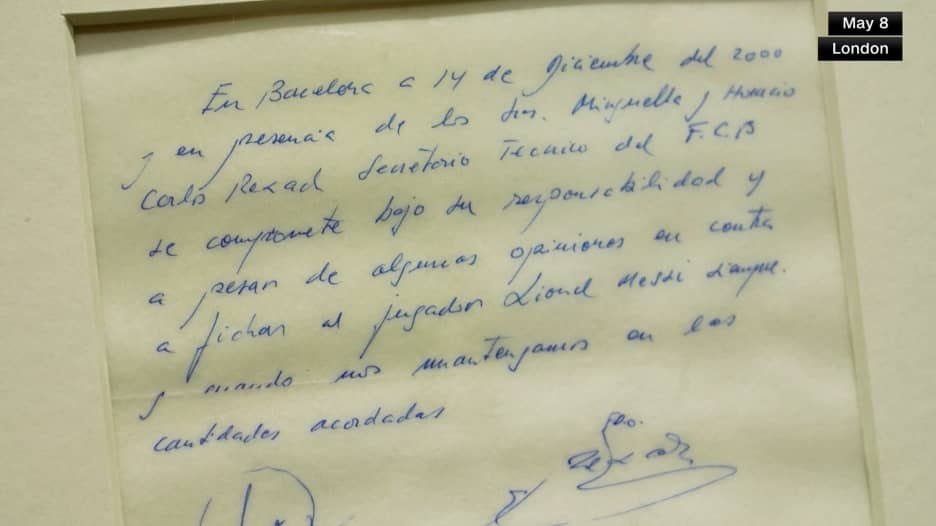 May 8
London
En Barcelona a 14 de Diciembre del 2000
y en presencia de los Srs. Minguella y Horacio
Carlos Rexach Secretario Tecnico del F.C.B
se compromete bajo su responsabilidad y
a pesar de algunas opiniones en contra
a fichar al jugador Lionel Messi siempre.
y cuando nos mantengamos en las
cantidades acordadas